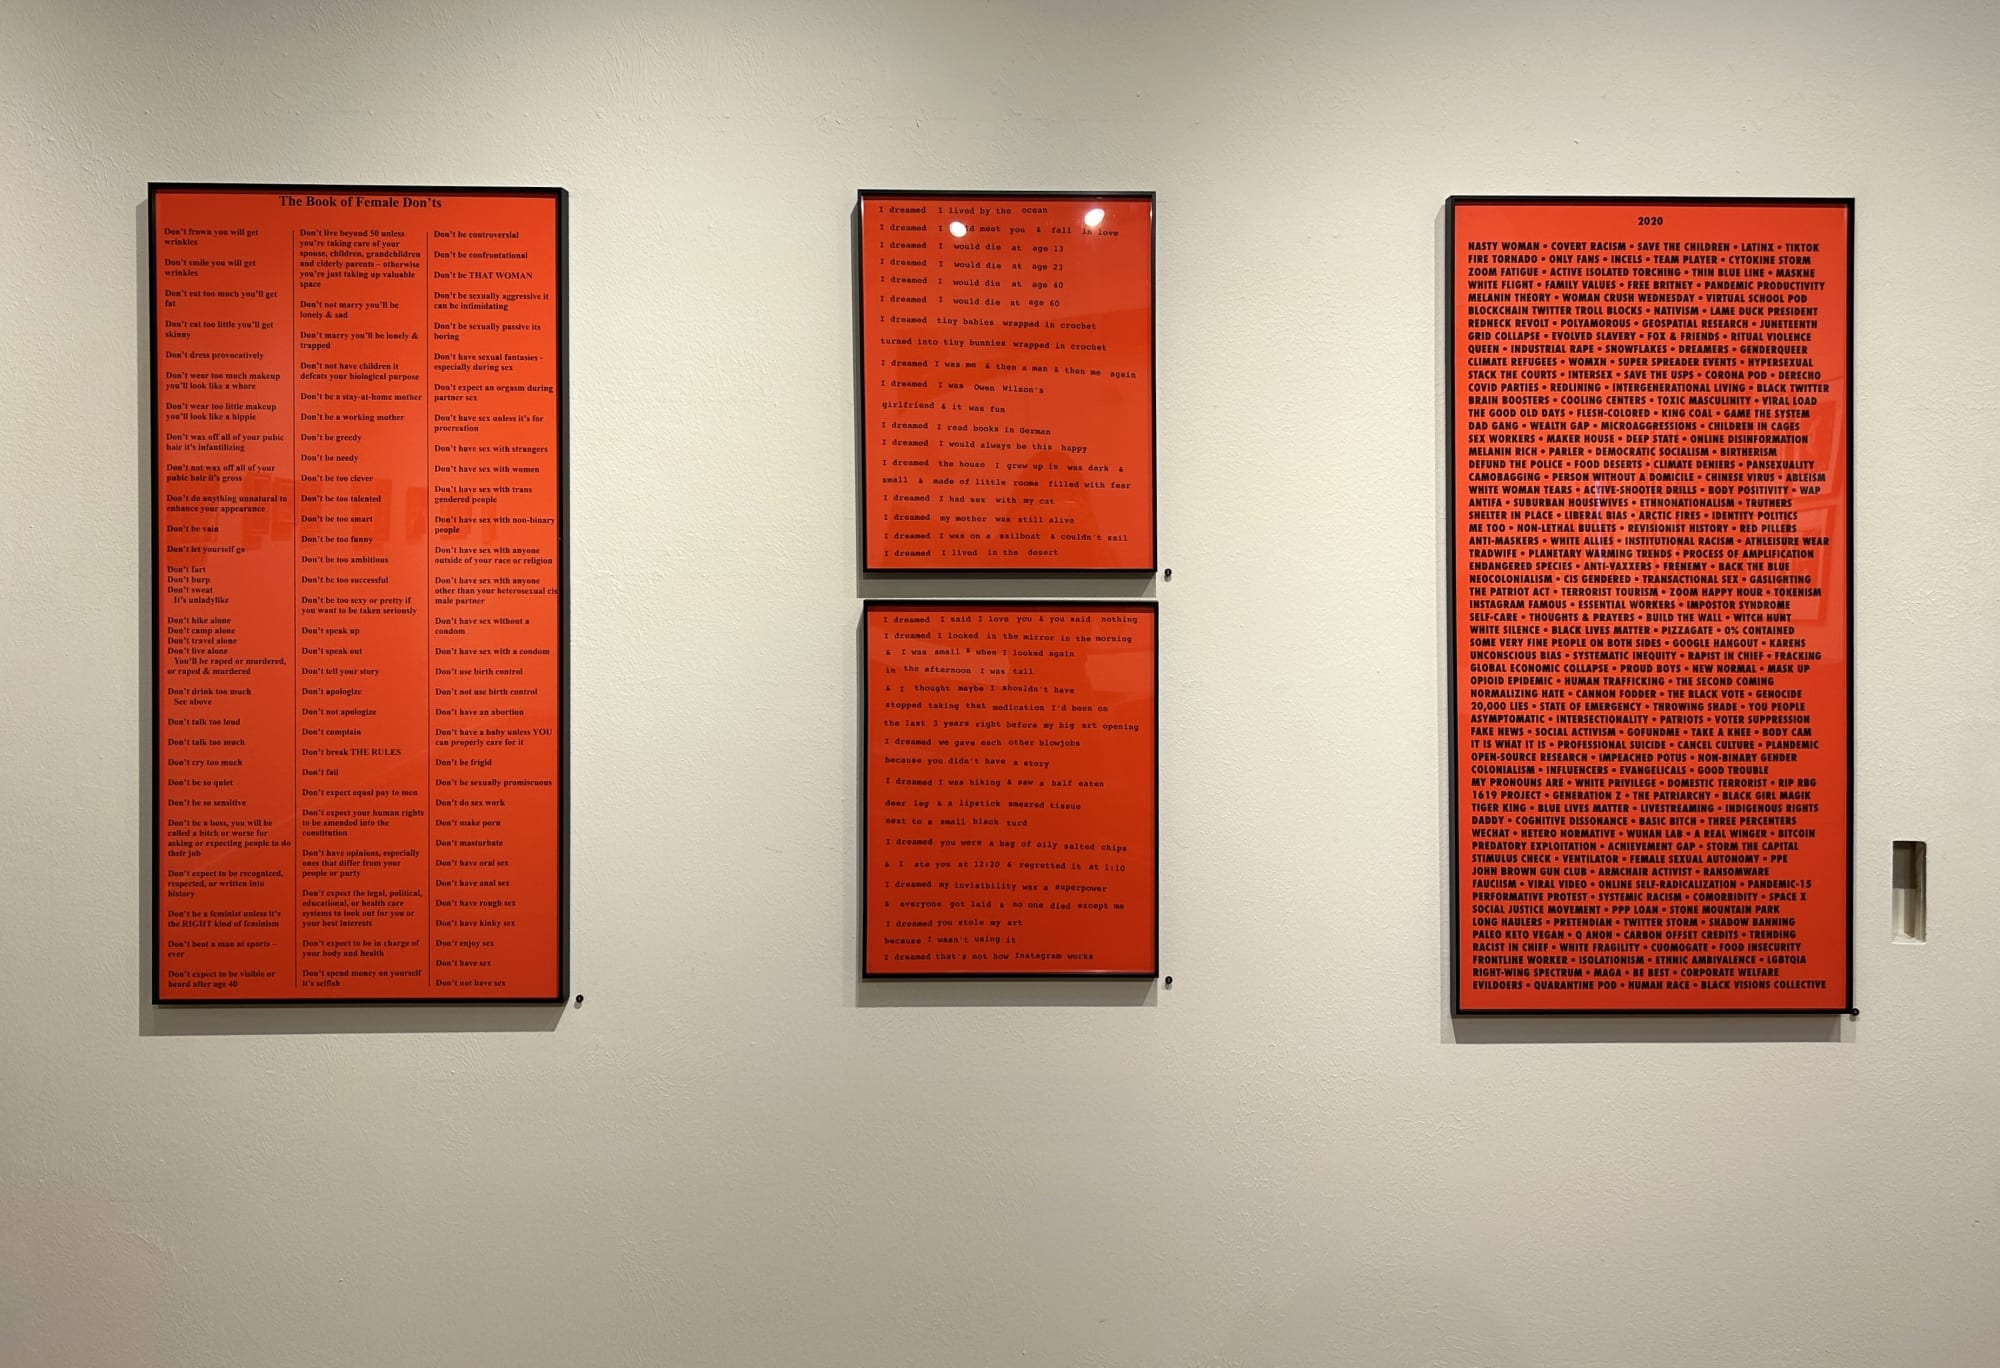 The Book of Female Don'ts
Don't frown you will get
wrinkles
Don't smile you will get
wrinkles
Don't eat too much you'll get
fat
Don't eat too little you'll get
skinny
Don't dress provocatively
Don't wear too much makeup
you'll look like a whore
Don't wear too little makeup
you'll look like a hippie
Don't wax off all of your pubic
hair it's infantilizing
Don't not wax off all of your
pubic hair it's gross
Don't do anything unnatural to
enhance your appearance
Don't be vain
Don't let yourself go
Don't fart
Don't burp
Don't sweat
It's unladylike
Don't hike alone
Don't camp alone
Don't travel alone
Don't live alone
You'll be raped or murdered,
or raped & murdered
Don't drink too much
See above
Don't talk too loud
Don't talk too much
Don't cry too much
Don't be so quiet
Don't be so sensitive
Don't be a boss, you will be
called a bitch or worse for
asking or expecting people to do
their job
Don't expect to be recognized,
respected, or written into
history
Don't be a feminist unless it's
the RIGHT kind of feminism
Don't beat a man at sports –
ever
Don't expect to be visible or
heard after age 40
Don't live beyond 50 unless
you're taking care of your
spouse, children, grandchildren
and elderly parents – otherwise
you're just taking up valuable
space
Don't not marry you'll be
lonely & sad
Don't marry you'll be lonely &
trapped
Don't not have children it
defeats your biological purpose
Don't be a stay-at-home mother
Don't be a working mother
Don't be greedy
Don't be needy
Don't be too clever
Don't be too talented
Don't be too smart
Don't be too funny
Don't be too ambitious
Don't be too successful
Don't be too sexy or pretty if
you want to be taken seriously
Don't speak up
Don't speak out
Don't tell your story
Don't apologize
Don't not apologize
Don't complain
Don't break THE RULES
Don't fail
Don't expect equal pay to men
Don't expect your human rights
to be amended into the
constitution
Don't have opinions, especially
ones that differ from your
people or party
Don't expect the legal, political,
educational, or health care
systems to look out for you or
your best interests
Don't expect to be in charge of
your body and health
Don't spend money on yourself
it's selfish
Don't be controversial
Don't be confrontational
Don't be THAT WOMAN
Don't be sexually aggressive it
can be intimidating
Don't be sexually passive its
boring
Don't have sexual fantasies –
especially during sex
Don't expect an orgasm during
partner sex
Don't have sex unless it's for
procreation
Don't have sex with strangers
Don't have sex with women
Don't have sex with trans
gendered people
Don't have sex with non-binary
people
Don't have sex with anyone
outside of your race or religion
Don't have sex with anyone
other than your heterosexual cis
male partner
Don't have sex without a
condom
Don't have sex with a condom
Don't use birth control
Don't not use birth control
Don't have an abortion
Don't have a baby unless YOU
can properly care for it
Don't be frigid
Don't be sexually promiscuous
Don't do sex work
Don't make porn
Don't masturbate
Don't have oral sex
Don't have anal sex
Don't have rough sex
Don't have kinky sex
Don't enjoy sex
Don't have sex
Don't not have sex
I dreamed I lived by the ocean
I dreamed I meet you & fall in love
I dreamed I would die at age 13
I dreamed I would die at age 23
I dreamed I would die at age 40
I dreamed I would die at age 60
I dreamed tiny babies wrapped in crochet
turned into tiny bunnies wrapped in crochet
I dreamed I was me & then a man & then me again
I dreamed I was Owen Wilson's
girlfriend & it was fun
I dreamed I read books in German
I dreamed I would always be this happy
I dreamed the house I grew up in was dark &
small & made of little rooms filled with fear
I dreamed I had sex with my cat
I dreamed my mother was still alive
I dreamed I was on a sailboat & couldn't sail
I dreamed I lived in the desert
I dreamed I said I love you & you said nothing
I dreamed I looked in the mirror in the morning
& I was small & when I looked again
in the afternoon I was tall
& I thought maybe I shouldn't have
stopped taking that medication I'd been on
the last 3 years right before my big art opening
I dreamed we gave each other blowjobs
because you didn't have a story
I dreamed I was hiking & saw a half eaten
deer leg & a lipstick smeared tissue
next to a small black turd
I dreamed you were a bag of oily salted chips
& I ate you at 12:20 & regretted it at 1:10
I dreamed my invisibility was a superpower
& everyone got laid & no one died except me
I dreamed you stole my art
because I wasn't using it
I dreamed that's not how Instagram works
2020
NASTY WOMAN • COVERT RACISM • SAVE THE CHILDREN • LATINX • TIKTOK
FIRE TORNADO • ONLY FANS • INCELS • TEAM PLAYER • CYTOKINE STORM
ZOOM FATIGUE • ACTIVE ISOLATED TORCHING • THIN BLUE LINE • MASKNE
WHITE FLIGHT • FAMILY VALUES • FREE BRITNEY • PANDEMIC PRODUCTIVITY
MELANIN THEORY • WOMAN CRUSH WEDNESDAY • VIRTUAL SCHOOL POD
BLOCKCHAIN TWITTER TROLL BLOCKS • NATIVISM • LAME DUCK PRESIDENT
REDNECK REVOLT • POLYAMOROUS • GEOSPATIAL RESEARCH • JUNETEENTH
GRID COLLAPSE • EVOLVED SLAVERY • FOX & FRIENDS • RITUAL VIOLENCE
QUEEN • INDUSTRIAL RAPE • SNOWFLAKES • DREAMERS • GENDERQUEER
CLIMATE REFUGEES • WOMXN • SUPER SPREADER EVENTS • HYPERSEXUAL
STACK THE COURTS • INTERSEX • SAVE THE USPS • CORONA POD • DERECHO
COVID PARTIES • REDLINING • INTERGENERATIONAL LIVING • BLACK TWITTER
BRAIN BOOSTERS • COOLING CENTERS • TOXIC MASCULINITY • VIRAL LOAD
THE GOOD OLD DAYS • FLESH-COLORED • KING COAL • GAME THE SYSTEM
DAD GANG • WEALTH GAP • MICROAGGRESSIONS • CHILDREN IN CAGES
SEX WORKERS • MAKER HOUSE • DEEP STATE • ONLINE DISINFORMATION
MELANIN RICH • PARLER • DEMOCRATIC SOCIALISM • BIRTHERISM
DEFUND THE POLICE • FOOD DESERTS • CLIMATE DENIERS • PANSEXUALITY
CAMOBAGGING • PERSON WITHOUT A DOMICILE • CHINESE VIRUS • ABLEISM
WHITE WOMAN TEARS • ACTIVE-SHOOTER DRILLS • BODY POSITIVITY • WAP
ANTIFA • SUBURBAN HOUSEWIVES • ETHNONATIONALISM • TRUTHERS
SHELTER IN PLACE • LIBERAL BIAS • ARCTIC FIRES • IDENTITY POLITICS
ME TOO • NON-LETHAL BULLETS • REVISIONIST HISTORY • RED PILLERS
ANTI-MASKERS • WHITE ALLIES • INSTITUTIONAL RACISM • ATHLEISURE WEAR
TRADWIFE • PLANETARY WARMING TRENDS • PROCESS OF AMPLIFICATION
ENDANGERED SPECIES • ANTI-VAXXERS • FRENEMY • BACK THE BLUE
NEOCOLONIALISM • CIS GENDERED • TRANSACTIONAL SEX • GASLIGHTING
THE PATRIOT ACT • TERRORIST TOURISM • ZOOM HAPPY HOUR • TOKENISM
INSTAGRAM FAMOUS • ESSENTIAL WORKERS • IMPOSTOR SYNDROME
SELF-CARE • THOUGHTS & PRAYERS • BUILD THE WALL • WITCH HUNT
WHITE SILENCE • BLACK LIVES MATTER • PIZZAGATE • 0% CONTAINED
SOME VERY FINE PEOPLE ON BOTH SIDES • GOOGLE HANGOUT • KARENS
UNCONSCIOUS BIAS • SYSTEMATIC INEQUITY • RAPIST IN CHIEF • FRACKING
GLOBAL ECONOMIC COLLAPSE • PROUD BOYS • NEW NORMAL • MASK UP
OPIOID EPIDEMIC • HUMAN TRAFFICKING • THE SECOND COMING
NORMALIZING HATE • CANNON FODDER • THE BLACK VOTE • GENOCIDE
20,000 LIES • STATE OF EMERGENCY • THROWING SHADE • YOU PEOPLE
ASYMPTOMATIC • INTERSECTIONALITY • PATRIOTS • VOTER SUPPRESSION
FAKE NEWS • SOCIAL ACTIVISM • GOFUNDME • TAKE A KNEE • BODY CAM
IT IS WHAT IT IS • PROFESSIONAL SUICIDE • CANCEL CULTURE • PLANDEMIC
OPEN-SOURCE RESEARCH • IMPEACHED POTUS • NON-BINARY GENDER
COLONIALISM • INFLUENCERS • EVANGELICALS • GOOD TROUBLE
MY PRONOUNS ARE • WHITE PRIVILEGE • DOMESTIC TERRORIST • RIP RBG
1619 PROJECT • GENERATION Z • THE PATRIARCHY • BLACK GIRL MAGIK
TIGER KING • BLUE LIVES MATTER • LIVESTREAMING • INDIGENOUS RIGHTS
DADDY • COGNITIVE DISSONANCE • BASIC BITCH • THREE PERCENTERS
WECHAT • HETERO NORMATIVE • WUHAN LAB • A REAL WINGER • BITCOIN
PREDATORY EXPLOITATION • ACHIEVEMENT GAP • STORM THE CAPITAL
STIMULUS CHECK • VENTILATOR • FEMALE SEXUAL AUTONOMY • PPE
JOHN BROWN GUN CLUB • ARMCHAIR ACTIVIST • RANSOMWARE
FAUCIISM • VIRAL VIDEO • ONLINE SELF-RADICALIZATION • PANDEMIC-15
PERFORMATIVE PROTEST • SYSTEMIC RACISM • COMORBIDITY • SPACE X
SOCIAL JUSTICE MOVEMENT • PPP LOAN • STONE MOUNTAIN PARK
LONG HAULERS • PRETENDIAN • TWITTER STORM • SHADOW BANNING
PALEO KETO VEGAN • Q ANON • CARBON OFFSET CREDITS • TRENDING
RACIST IN CHIEF • WHITE FRAGILITY • CUOMOGATE • FOOD INSECURITY
FRONTLINE WORKER • ISOLATIONISM • ETHNIC AMBIVALENCE • LGBTQIA
RIGHT-WING SPECTRUM • MAGA • BE BEST • CORPORATE WELFARE
EVILDOERS • QUARANTINE POD • HUMAN RACE • BLACK VISIONS COLLECTIVE